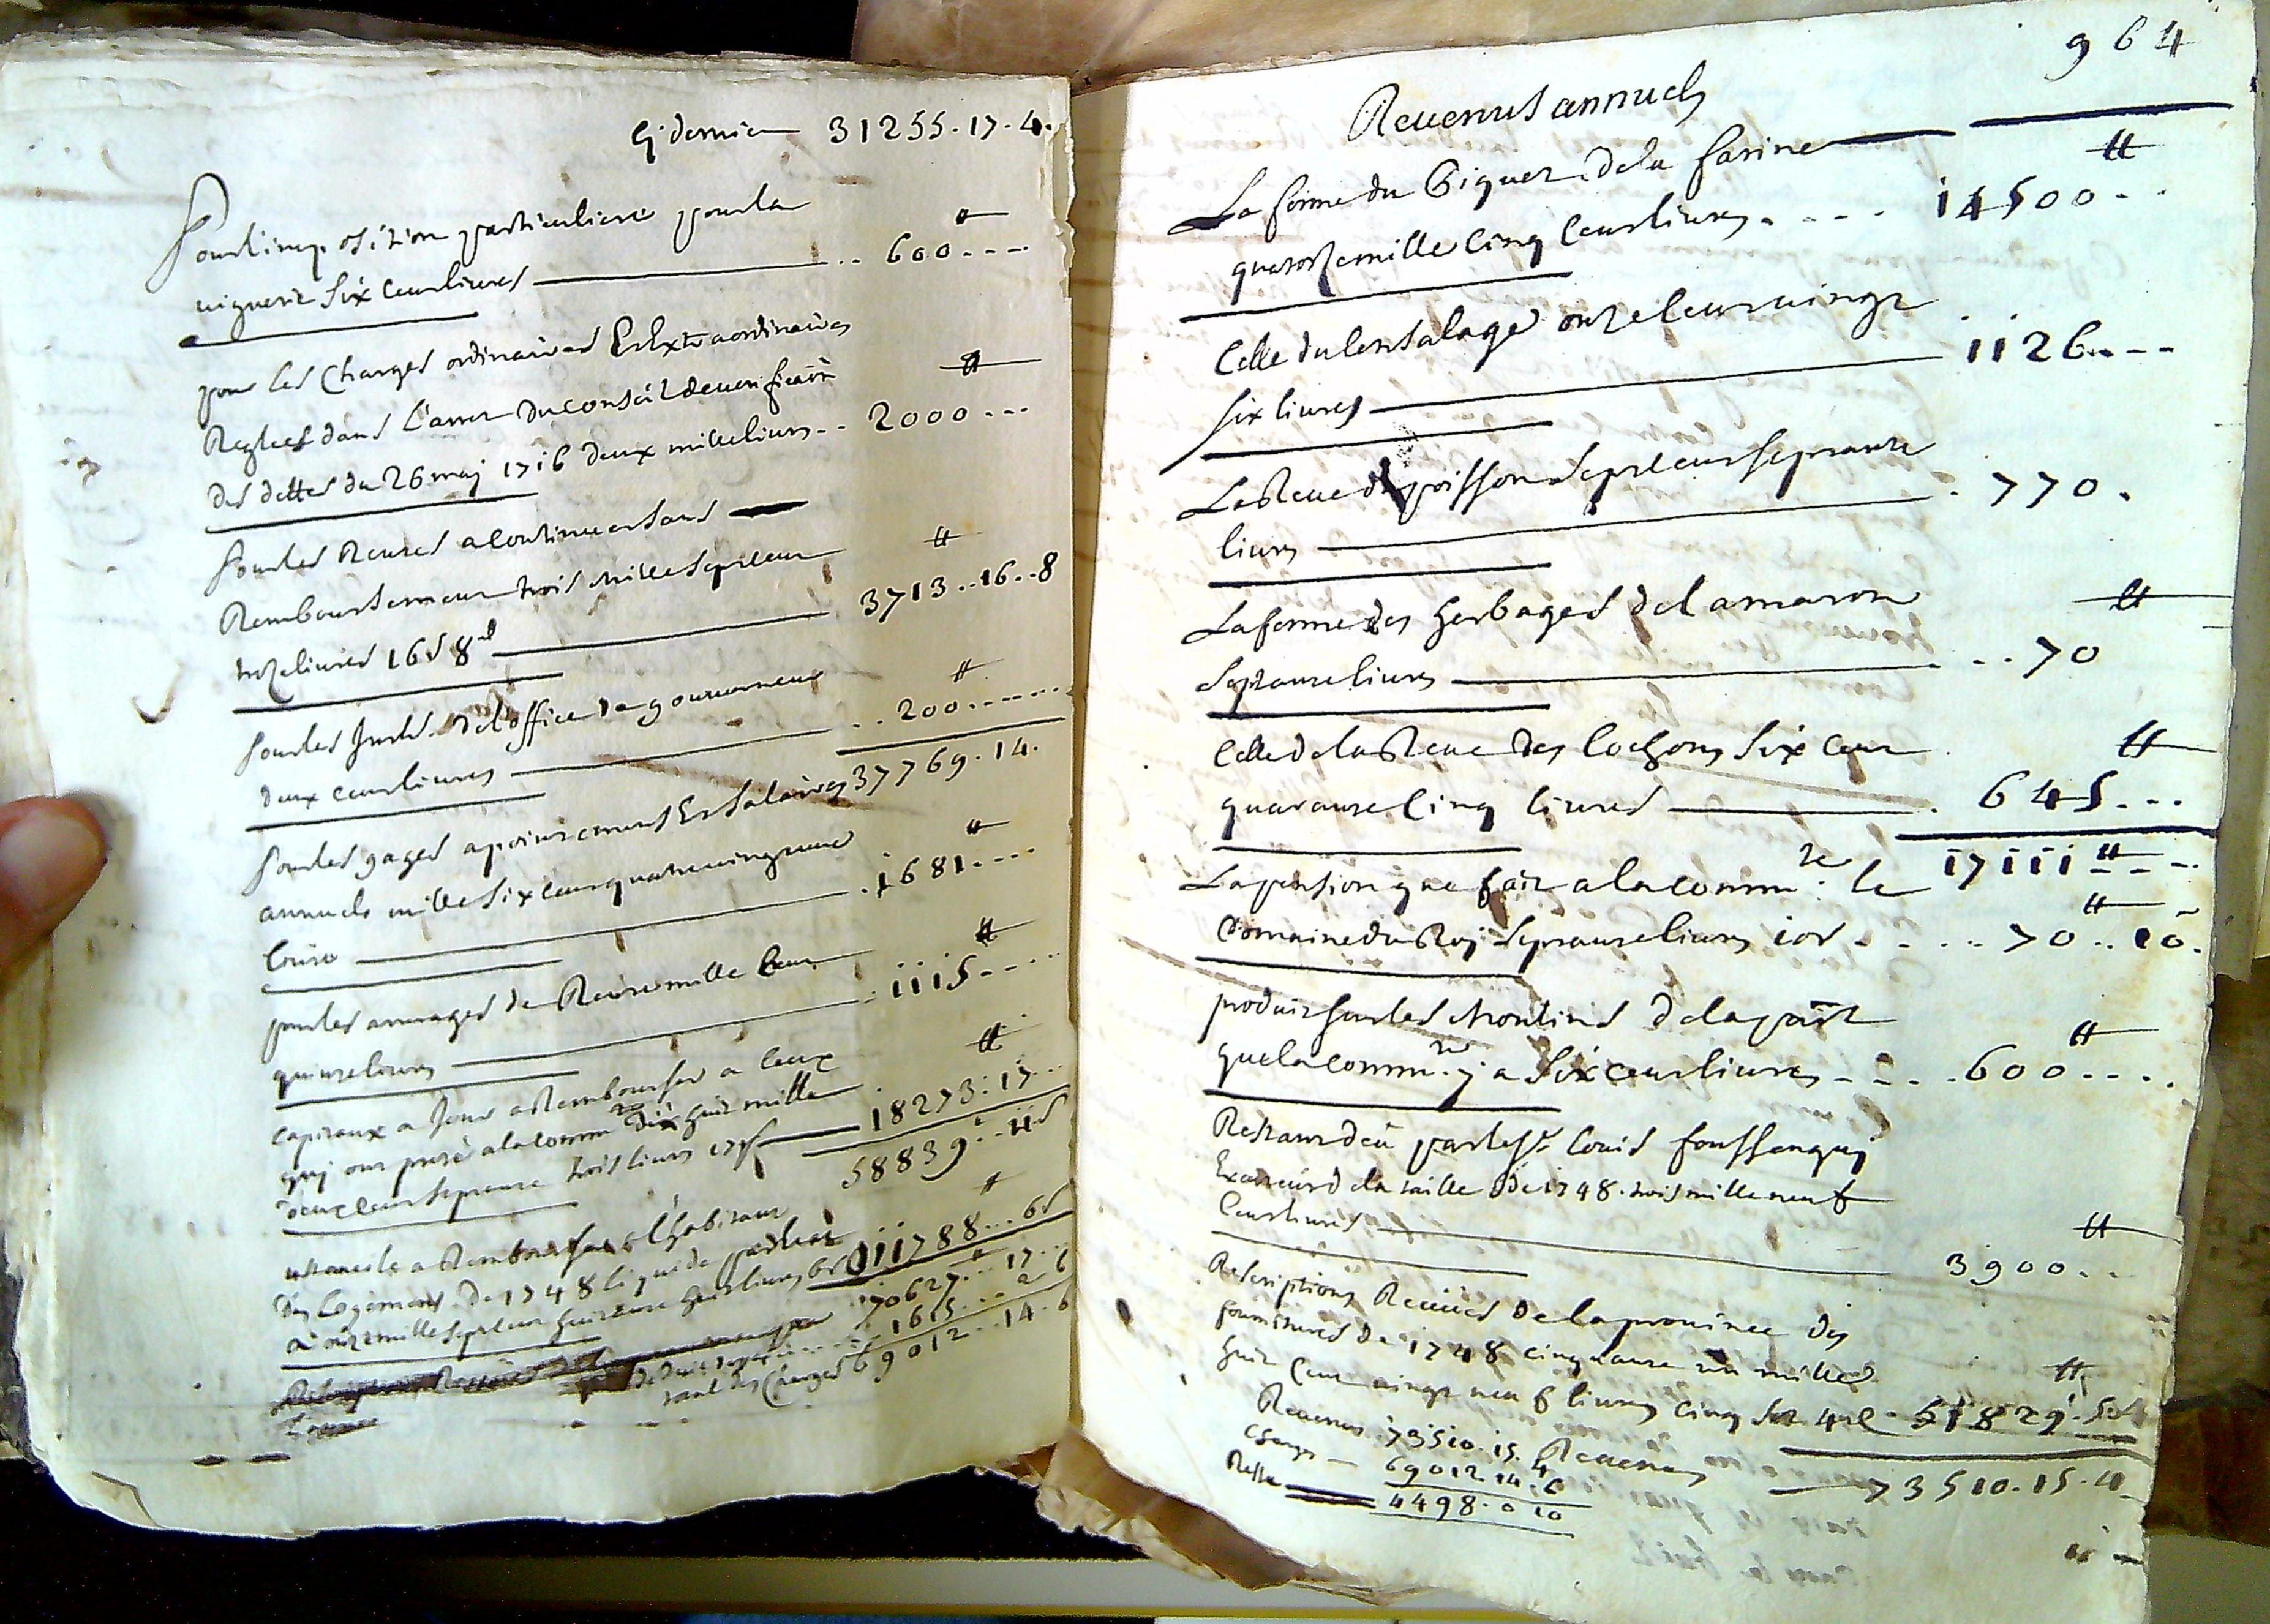 Cy dernier 31255.17.4.
Pour limposition particuliere pour la
viguerie six cent livres .. 600 ₶ ....
pour les charges ordinaires Et Extraordinaires
Reglees dans l'arret du conseil de verifica͠on
des dettes du 26 may 1716 deux mille livres .. 2000 ₶ ...
Pour les Rentes a continuer sans
Remboursement trois mille sept cent
treze livres 16 s 8 d 3713 ₶ ..16..8
Pour les Intts. de l'office de gouverneur
deux cent livres .. 200 ₶ ......
37769.14.
Pour les gages apointements Et salaires
annuels mille six cent quatre vingt une
livre . 1681 ₶ ....
pour les arrerages de Rente mille Cent
quinze livres . 1115 ₶ ....
Capitaux a Jour a Rembourser a Ceux
quj ont preté a la commté Dix huit mille
deux cent septante trois livres 17 s 18273 ₶ : 17 ..
58839 .. 11 s
ustancile a Rembourser a l'habitant
des logemens de 1748 liquidé
a onze mille sept cent huitante huit livres 6 s 11788 ₶ ... 6 s
70627 ... 17 ..
1615 ... 2 . 6
des Charges 69012 .. 14 . 6
964
Revenus annuels
La ferme du Piquet de la farine
quatorze mille Cinq Cent livres .... 14500 ₶ ...
Celle du lensalage onze Cent vingt
six livres 1126 ....
La Reve du poisson sept Cent septante
livres . 770 .
La ferme des herbages del amaron
septante livres ... 70 ₶
Celle de la Reve des Cochons six Cent
quarante Cinq livres . 645 ₶ ...
17111 ₶ ...
La pension que fait a la commté. le
domaine du Roy septante livres 10 s .... 70 ₶ .. 10.
produit sur les Moulins de la part
que la commté. y a six cent livres .... 600 ₶ ....
Restant deu par le Sr. Louis fonssenquj
Exacteur de la taille de 1748. trois mille neuf
Cent livres 3900 ₶ ..
Rescriptions Receües de la province des
fournitures de 1748 cinquante un mille
huit Cent vingt neuf livres Cinq s 4 d 51829 ₶ . 5 . 4
Revenus 73510.15.4
Revenus 73510.15.4
Charges 69012.14.6
Reste 4498.0.10